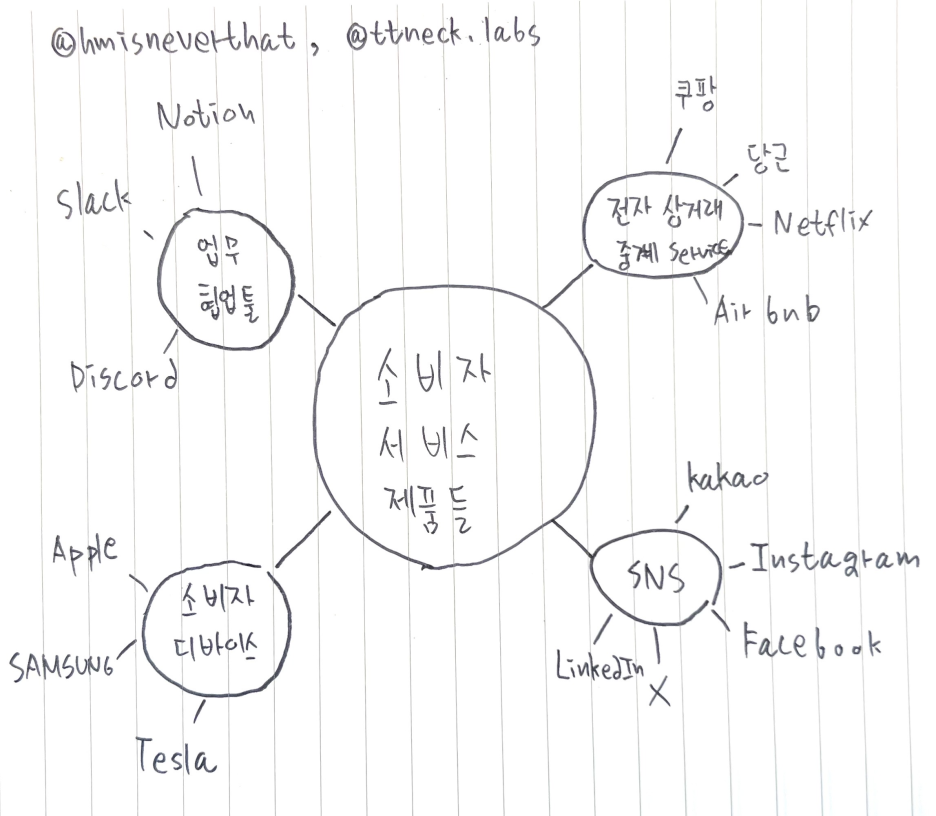 @hmisneverthat, @ttneck.labs
Notion
Slack
업무
협업툴
Discord
쿠팡
당근
전자 상거래
중계 Service
Netflix
Air bnb
소비자
서비스
제품들
Apple
소비자
디바이스
SAMSUNG
Tesla
kakao
SNS
Instagram
Facebook
LinkedIn
X